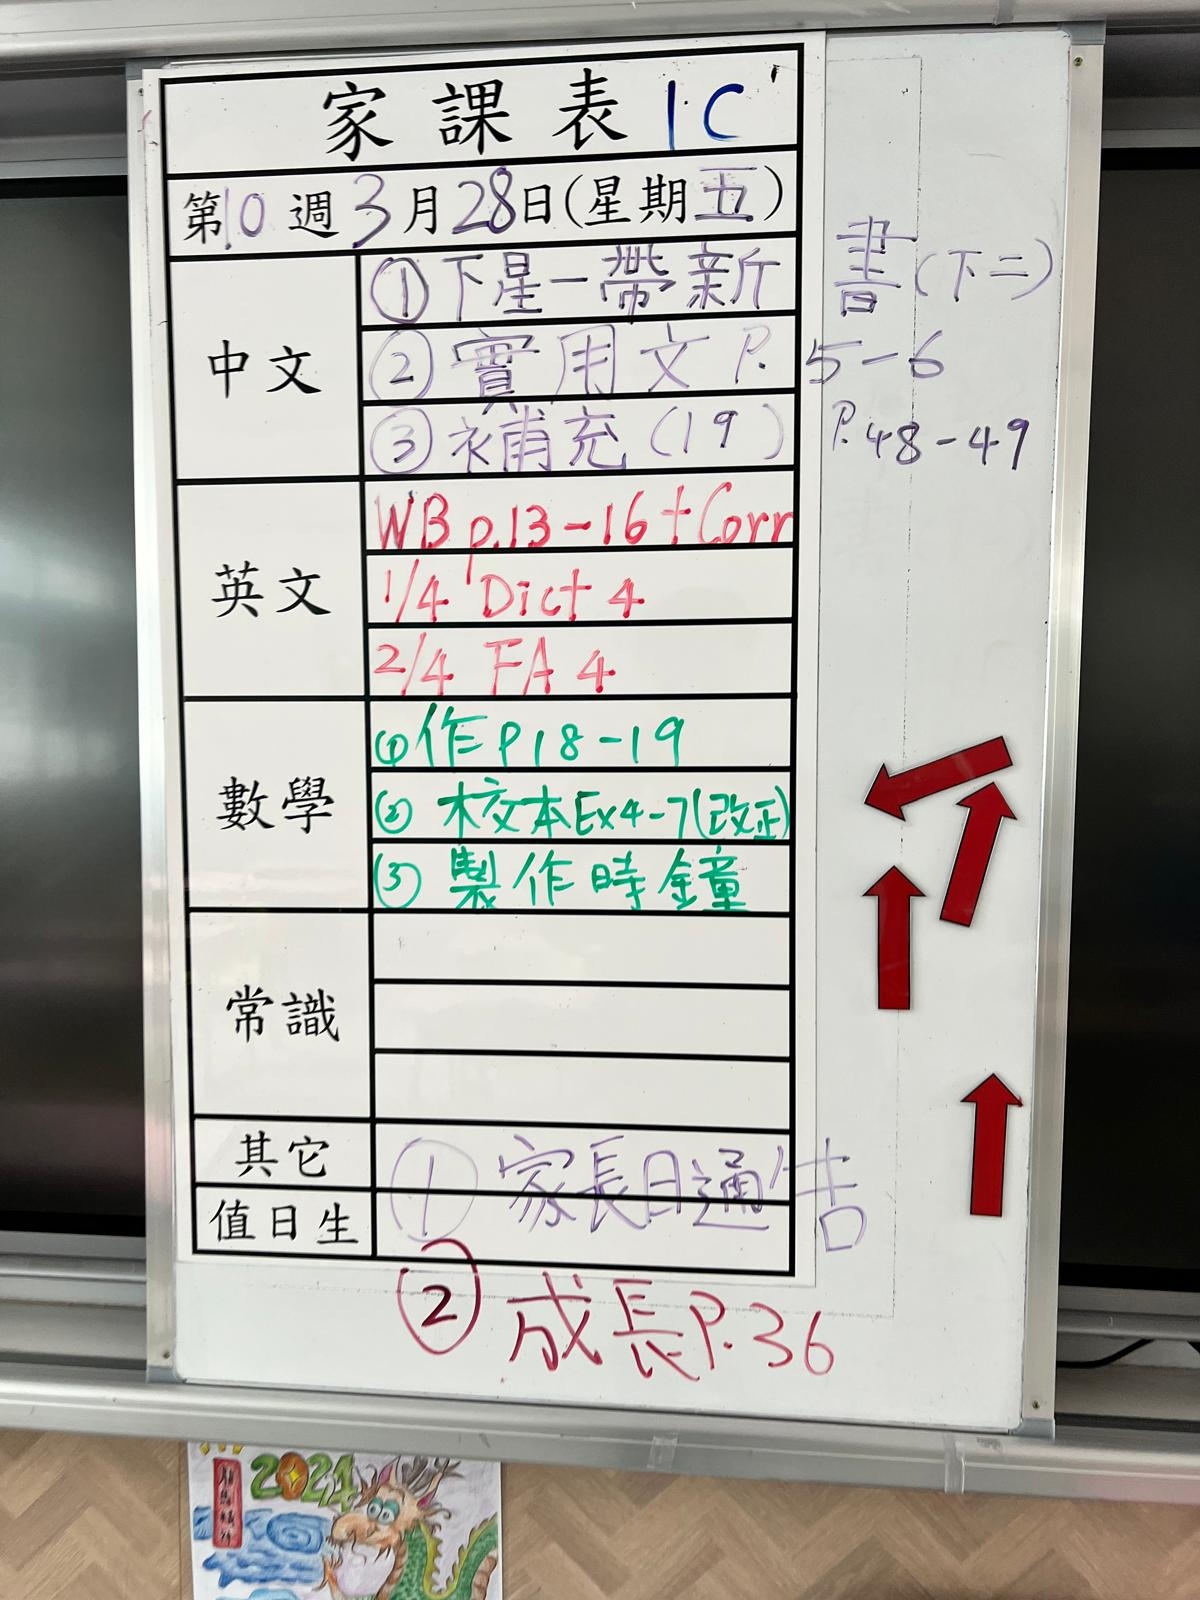 家課表 1C
第10週3月28日(星期五)
中文
①下星一帶新書(下二)
②實用文 P.5-6
③補充(19) P.48-49
英文
WB p.13-16+Corr
1/4 Dict 4
2/4 FA 4
數學
(1)作P18-19
(2)校本Ex4-7(改正)
(3)製作時鐘
常識
其它
①家長日通告
值日生
②成長P.36
2024